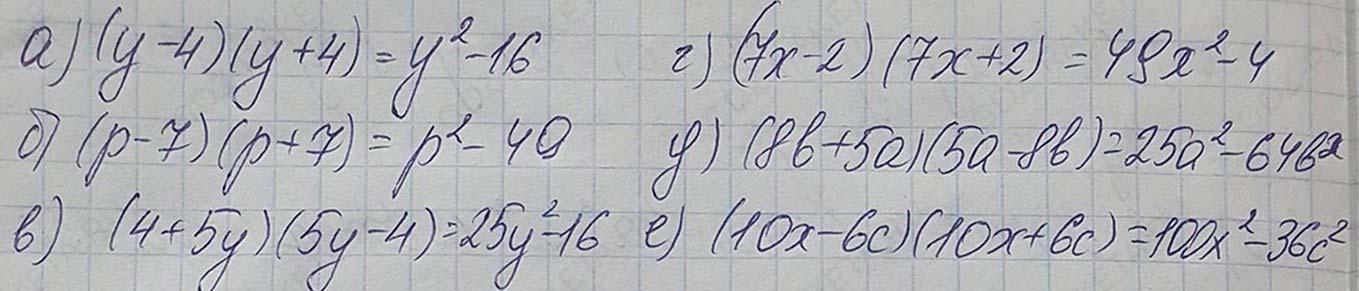 а) (y-4)(y+4)=y²-16
б) (p-7)(p+7)=p²-49
в) (4+5y)(5y-4)=25y²-16
г) (7x-2)(7x+2)=49x²-4
д) (8b+5a)(5a-8b)=25a²-64b²
е) (10x-6c)(10x+6c)=100x²-36c²